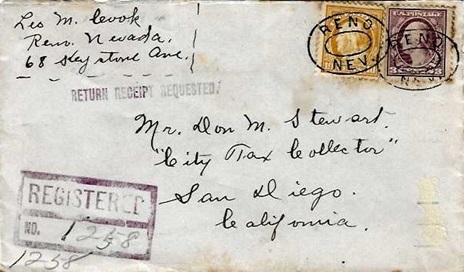 Les M. Cvook
Reno. Nevada.
68 Keystone Ave.
RENO
NEV.
RENO
NEV.
RETURN RECEIPT REQUESTED.
Mr. Don M. Stewart.
"City Tax Collector"
San Diego.
California.
REGISTERED
NO. 1258
1258